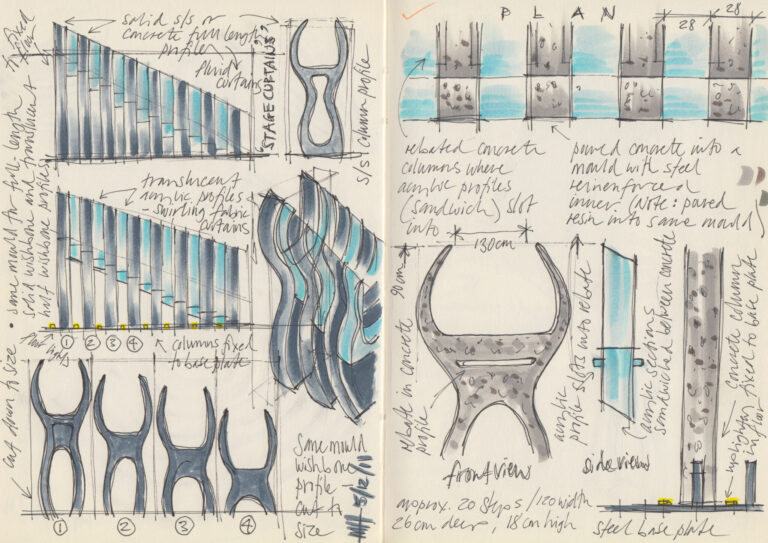 solid s/s or
concrete full length
profile
fluid
curtains
STAGE CURTAINS
s/s column profile
• same mould for full-length
solid wishbone and translucent
half wishbone profiles
cut down to size
translucent
acrylic profiles
- swirling fabric
curtains
① ② ③ ④
columns fixed
to base plate
① ② ③ ④
Same mould
wishbone
profile -
cut to
size
5/12/11
PLAN
28
28
rebated concrete
columns where
acrylic profiles
(sandwich) slot
into
poured concrete into a
mould with steel
reinforced
inner (Note: poured
resin into same mould)
130cm
90cm
rebate in concrete
profile
acrylic
profile slots into rebate
acrylic sections
sandwiched between concrete
concrete column
fixed to base plate
uplighter
in floor
front view
side views
approx. 20 steps / 120 width
26cm deep, 18cm high
steel base plate